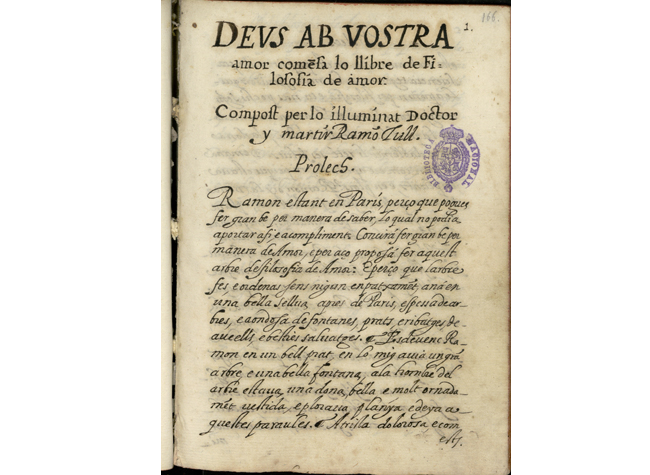 166.
1.
DEVS AB VOSTRA
amor comẽsa lo llibre de Fi=
losofia de amor.
Compost per lo illuminat Doctor
y martir Ramõ Lull.
Prolech.
Ramon estant en Paris, perço que pogues
fer gran be per manera de saber, lo qual no podia
aportar a fi e a compliment. Concira fer gran be per
manera de Amor, e per aço proposa fer aquest
arbre de filosofia de Amor: E perço que larbre
fes e ordenas sens nigun enpatxamẽt, ana en
una bella sellua, apres de Paris, espessa de ar-
bres, e aondosa de fontanes, prats, e ribatges, de
aucells e besties salvatges. Esdevenc Ra-
mon en un bell prat, en lo mig avia un grã
arbre, e una bella fontana, a la hombra del
arbre estava una dona, bella e molt ornada-
mẽt vestida, e plorava, planya e deya a-
questes paraules. A trista dolorosa, e com
BIBLIOTECA NACIONAL